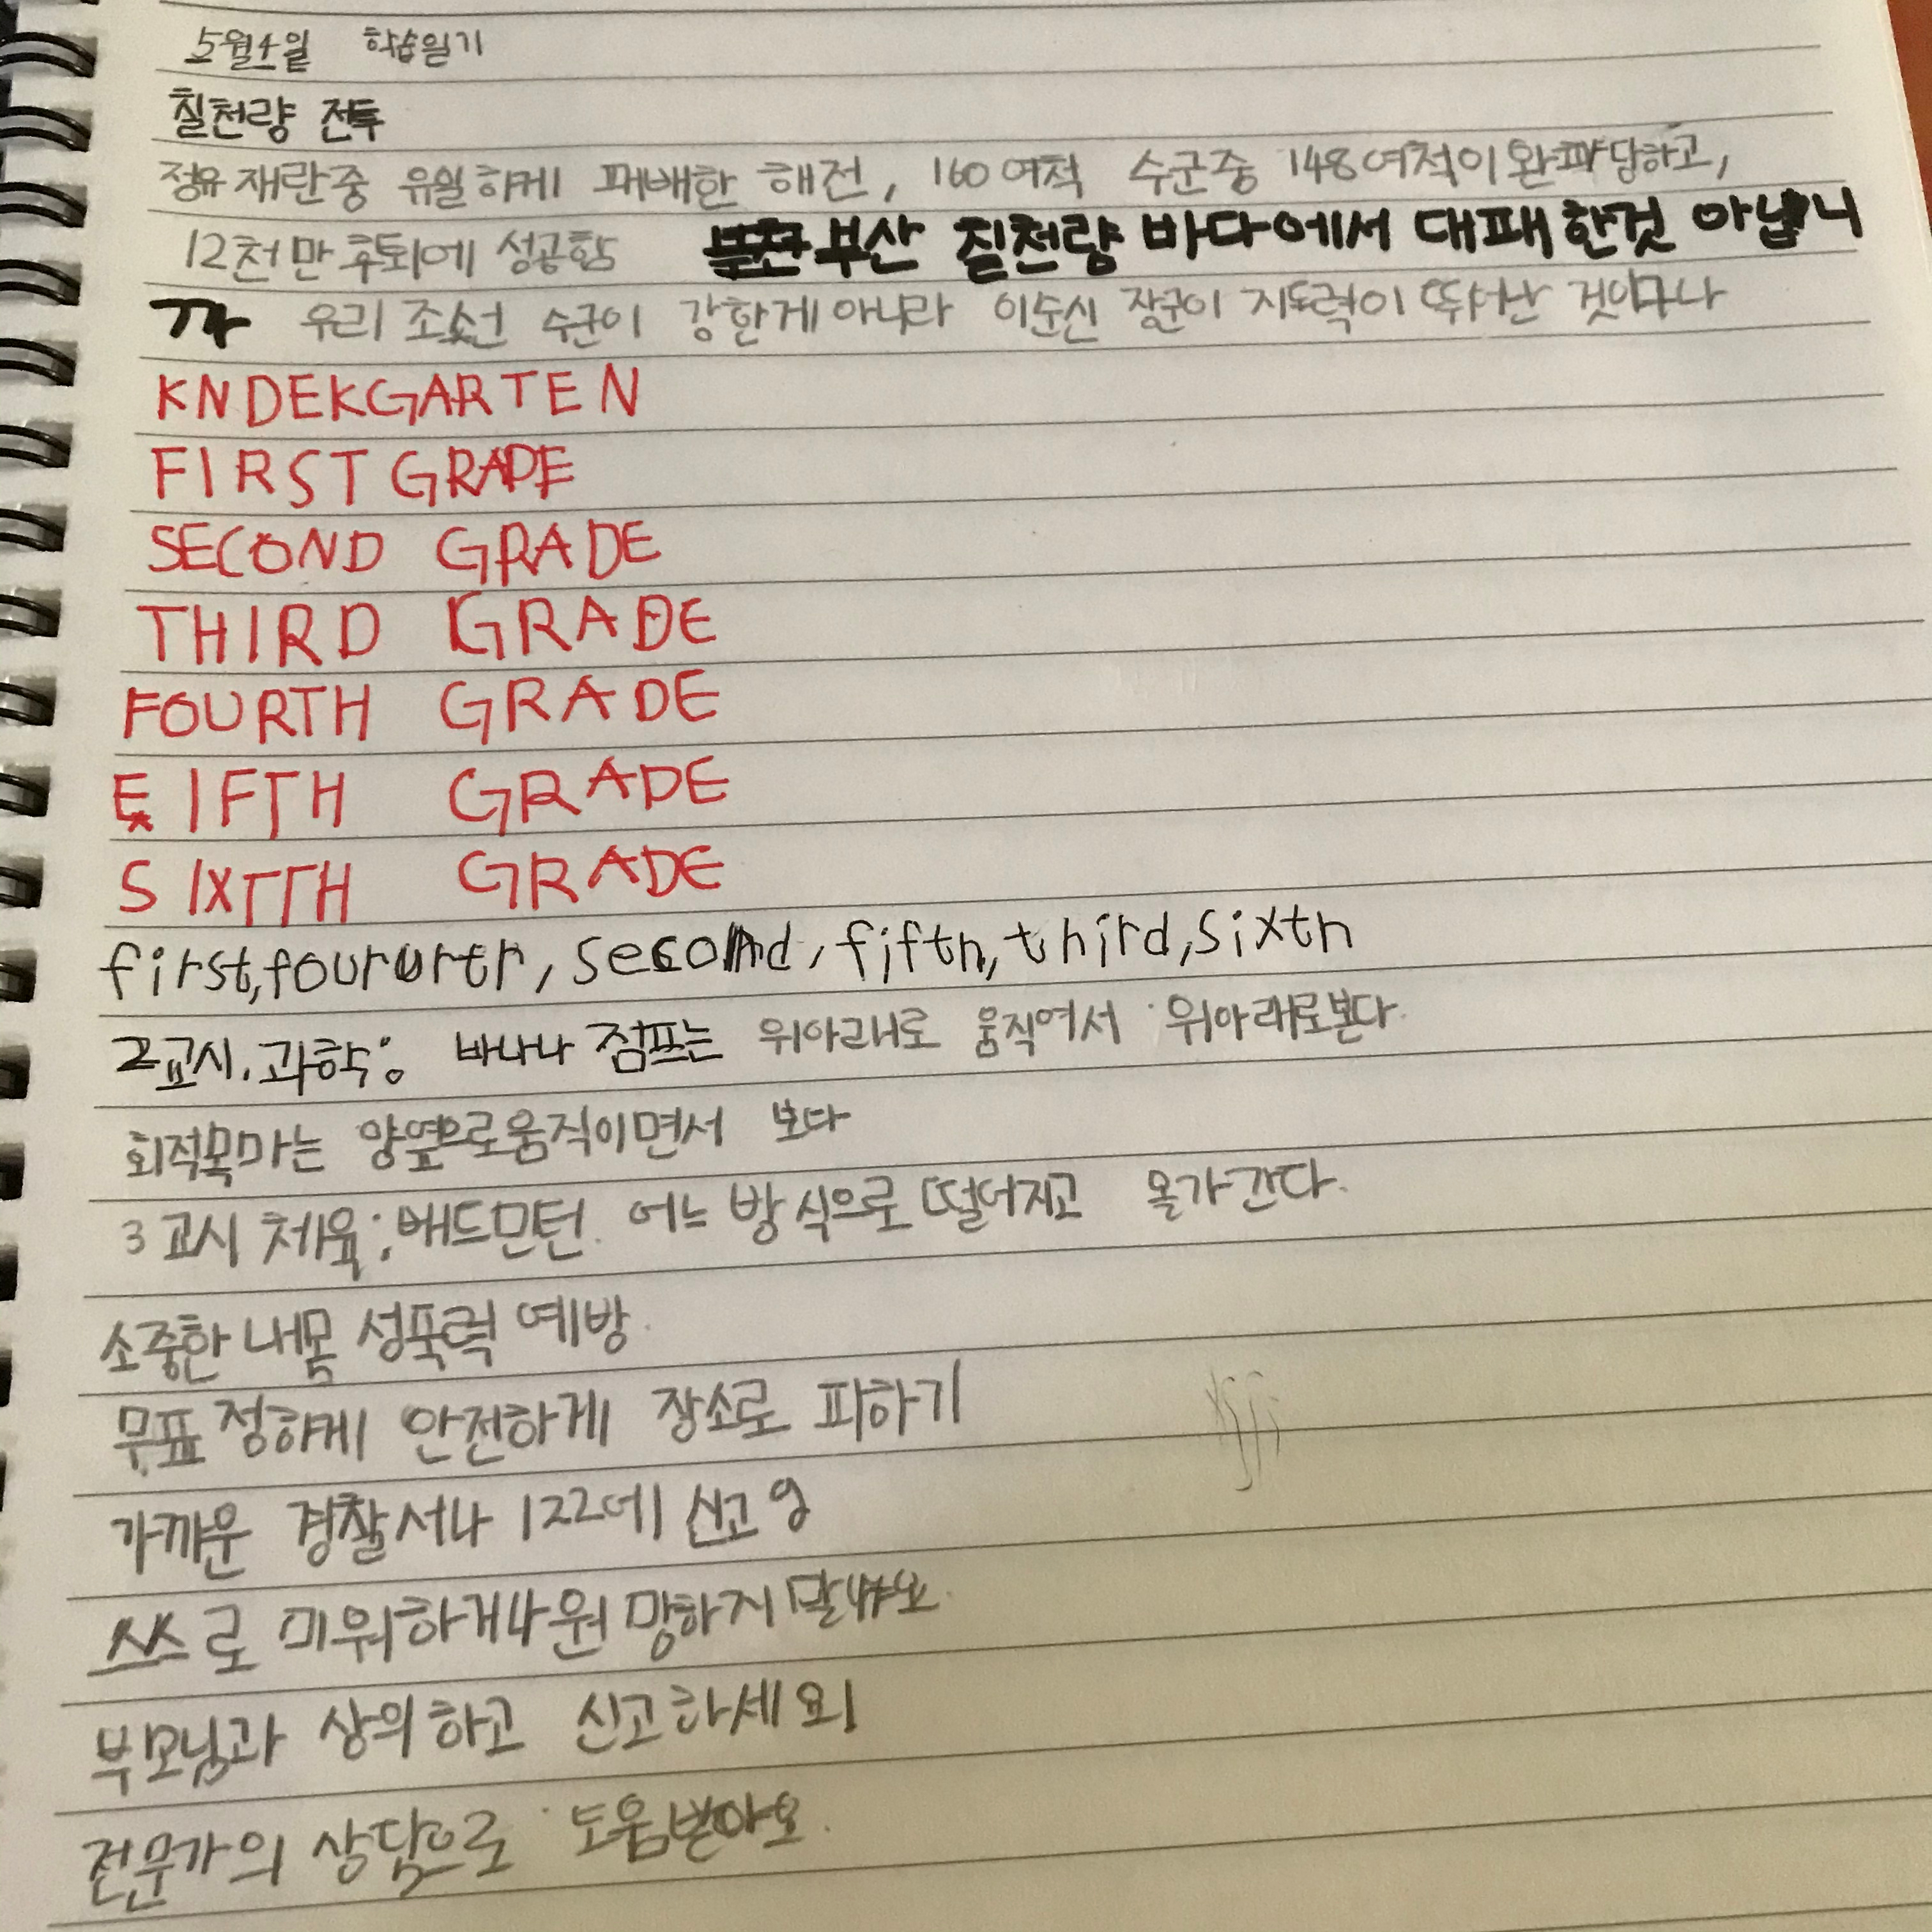 5월4일 학습일기
칠천량 전투
정유재란중 유일하게 패배한 해전, 160여척 수군중 148여척이 완파당하고,
12척만 후퇴에 성공함 부산 칠천량 바다에서 대패한것 아닙니
까 우리 조선 수군이 강한게 아니라 이순신 장군이 지도력이 뛰어난 것이다나
KNDEKGARTEN
FIRST GRADE
SECOND GRADE
THIRD GRADE
FOURTH GRADE
FIFTH GRADE
SIXTTH GRADE
first, second, fifth, third, sixth
2교시. 과학: 바나나 점프는 위아래로 움직여서 위아래로본다.
회적목마는 양옆으로움직이면서 보다
3교시 체육; 배드민턴. 어느 방식으로 떨어지고 올가간다.
소중한 내몸 성폭력 예방.
무표정하게 안전하게 장소로 피하기
가까운 경찰서나 122에 신고
쓰스로 미워하거나 원망하지
부모님과 상의하고 신고하세요!
전문가의 상담으로 도움받아요.